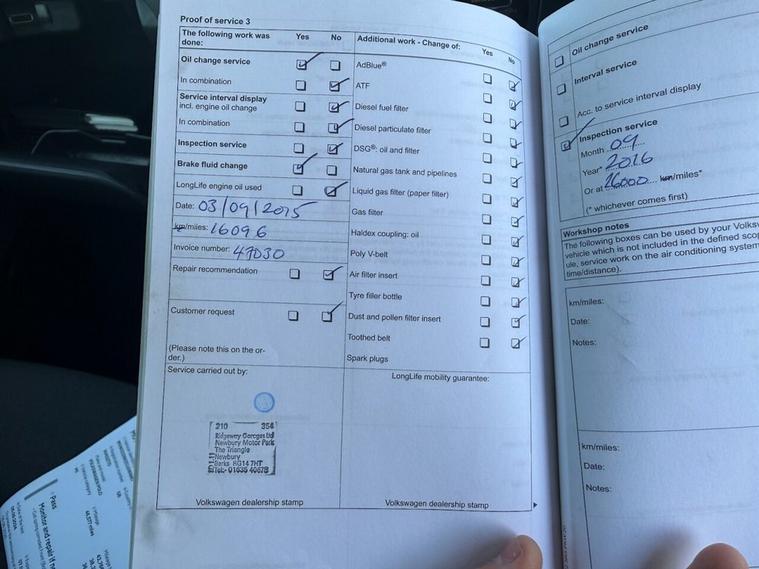 Proof of service 3
The following work was done: Yes No
Additional work - Change of: Yes No
Oil change service
In combination
Service interval display
incl. engine oil change
In combination
Inspection service
Brake fluid change
LongLife engine oil used
Date: 03/09/2015
km/miles: 16096
Invoice number: 47030
Repair recommendation
Customer request
(Please note this on the or-
der.)
Service carried out by:
210 354
Ridgeway Garages Ltd
Newbury Motor Park
The Triangle
Newbury
Berks RG14 7HT
Volkswagen dealership stamp
AdBlue®
ATF
Diesel fuel filter
Diesel particulate filter
DSG®: oil and filter
Natural gas tank and pipelines
Liquid gas filter (paper filter)
Gas filter
Haldex coupling: oil
Poly V-belt
Air filter insert
Tyre filler bottle
Dust and pollen filter insert
Toothed belt
Spark plugs
LongLife mobility guarantee:
Volkswagen dealership stamp
Oil change service
Interval service
Acc. to service interval display
Inspection service
Month 09
Year* 2016
Or at 26000 km/miles*
(* whichever comes first)
Workshop notes
The following boxes can be used by your Volksw
vehicle which is not included in the defined scop
ule, service work on the air conditioning system
time/distance).
km/miles:
Date:
Notes:
km/miles:
Date:
Notes:
Pass
Monitor and repair if